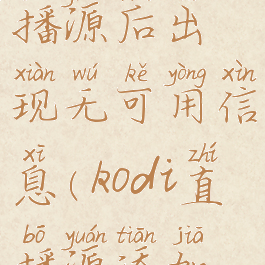 播源后出
xiàn wú kě yòng xìn
现无可用信
xī zhí
息(kodi直
bō yuán tiān jiā
播源添加